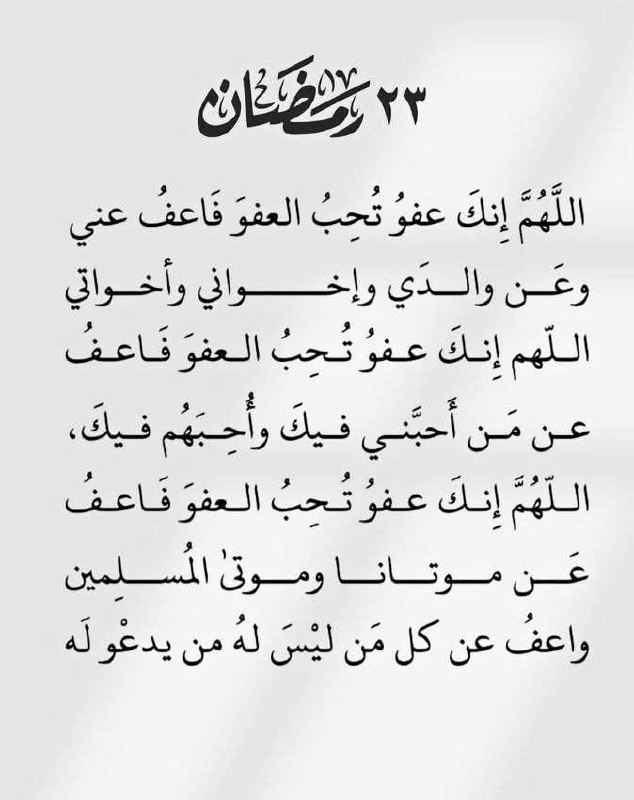 ٢٣ رمضان
اللَّهُمَّ إِنكَ عفوُ تُحِبُ العفوَ فَاعفُ عني
وعَن والدَي وإخواني وأخواتي
اللّهم إِنكَ عفوُ تُحِبُ العفوَ فَاعفُ
عن مَن أَحبَّني فيكَ وأُحِبَهُم فيكَ،
اللّهُمَّ إِنكَ عفوُ تُحِبُ العفوَ فَاعفُ
عَن موتانا وموتىٰ المُسلِمين
واعفُ عن كل مَن ليْسَ لهُ من يدعْو لَه